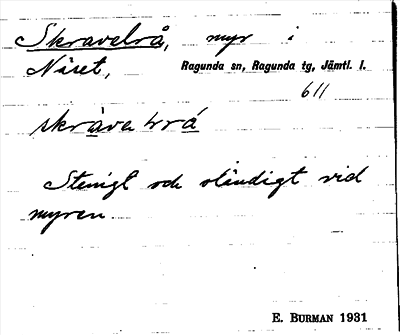 Skravelrå, myr i
Näset, Ragunda sn, Ragunda tg, Jämtl. l.
611
skràvel rrå
Stenigt och oländigt vid
myren
E. BURMAN 1931